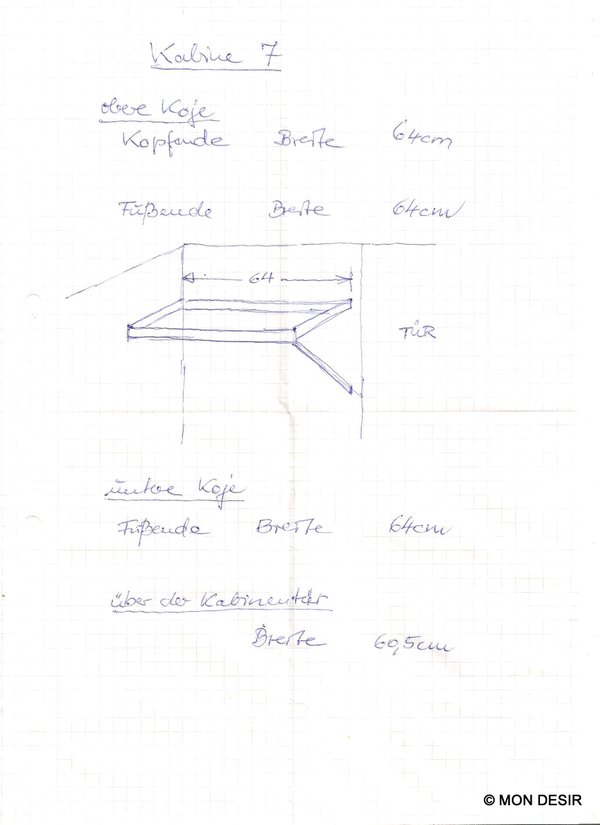 Kabine 7
obere Koje
Kopfende Breite 64cm
Fußende Breite 64cm
64
TÜR
untere Koje
Fußende Breite 64cm
über der Kabinentür
Breite 60,5cm
© MON DESIR